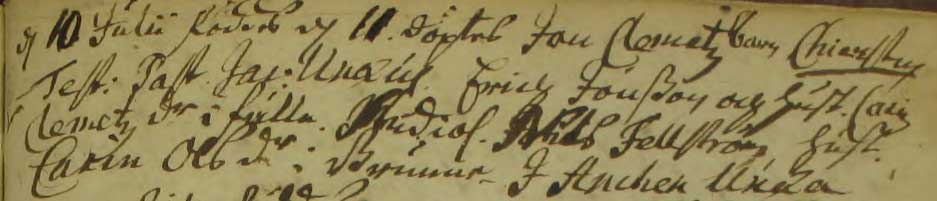 d 10 Julii föddes d 11. döptes Jon Clemetz barn Chierstin
Test: Past. Jac: Unæus. Erich Jonsson och hust. Carin
Clemetz dr i fulla. Studios. Fellström, hust.
Carin Ols dr i Brunne. J Anchen Unæa